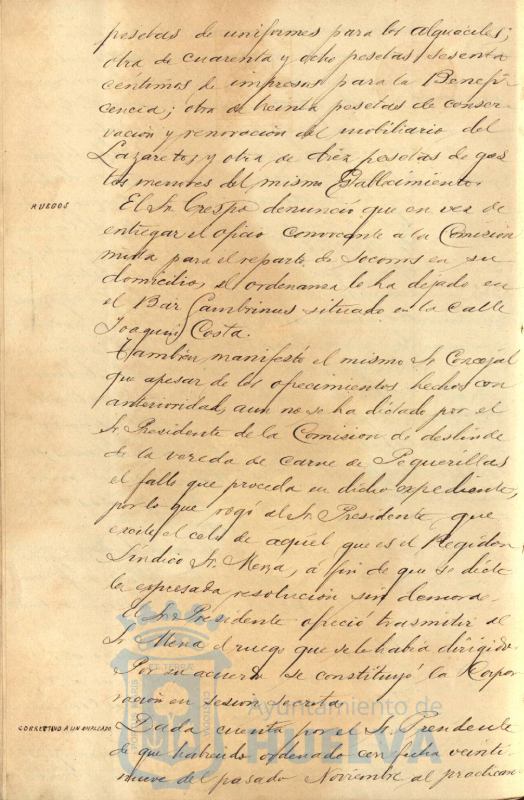 pesetas de uniformes para los alguaciles;
otra de cuarenta y ocho pesetas sesenta
céntimos de impresos para la Benefi-
cencia; otra de treinta pesetas de conser-
vación y renovación del mobiliario del
Lazareto; y otra de diez pesetas de gas-
tos menores del mismo Establecimiento.
RUEGOS
El Sr. Crespo denunció que en vez de
entregar el oficio convocante á la Comisión
mixta para el reparto de socorros en su
domicilio, el ordenanza lo ha dejado en
el Bar Gambrinus situado en la calle
Joaquín Costa.
También manifestó el mismo Sr. Concejal
que apesar de los ofrecimientos hechos con
anterioridad, aun no se ha dictado por el
Sr. Presidente de la Comisión de deslinde
de la vereda de carne de Peguerillas
el fallo que proceda en dicho expediente,
por lo que rogó al Sr. Presidente que
excite el celo de aquél, que es el Regidor
Síndico Sr. Mena, á fin de que se dicte
la expresada resolución sin demora.
El Sr. Presidente ofreció transmitir al
Sr. Mena el ruego que se le había dirigido.
Por su acuerdo se constituyó la Corpo-
ración en sesión secreta.
CORRECTIVO A UN EMPLEADO
Dada cuenta por el Sr. Presidente
de que habiendo ordenado con fecha veinti-
nueve del pasado Noviembre al practican-
Ayuntamiento de
HUELVA